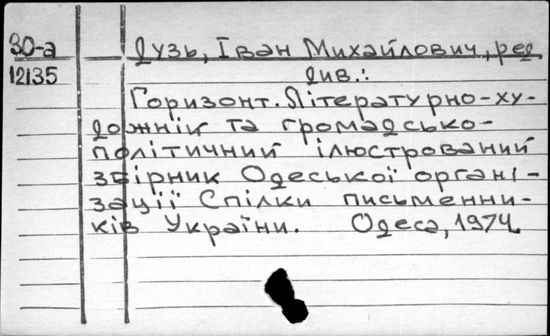 30-а Дузь, Іван Михайлович, ред.
12135 див.:
Горизонт. Літературно-ху-
дожній та громадсько-
політичний ілюстрований
збірник Одеської органі-
зації Спілки письменни-
ків України. Одеса, 1974.